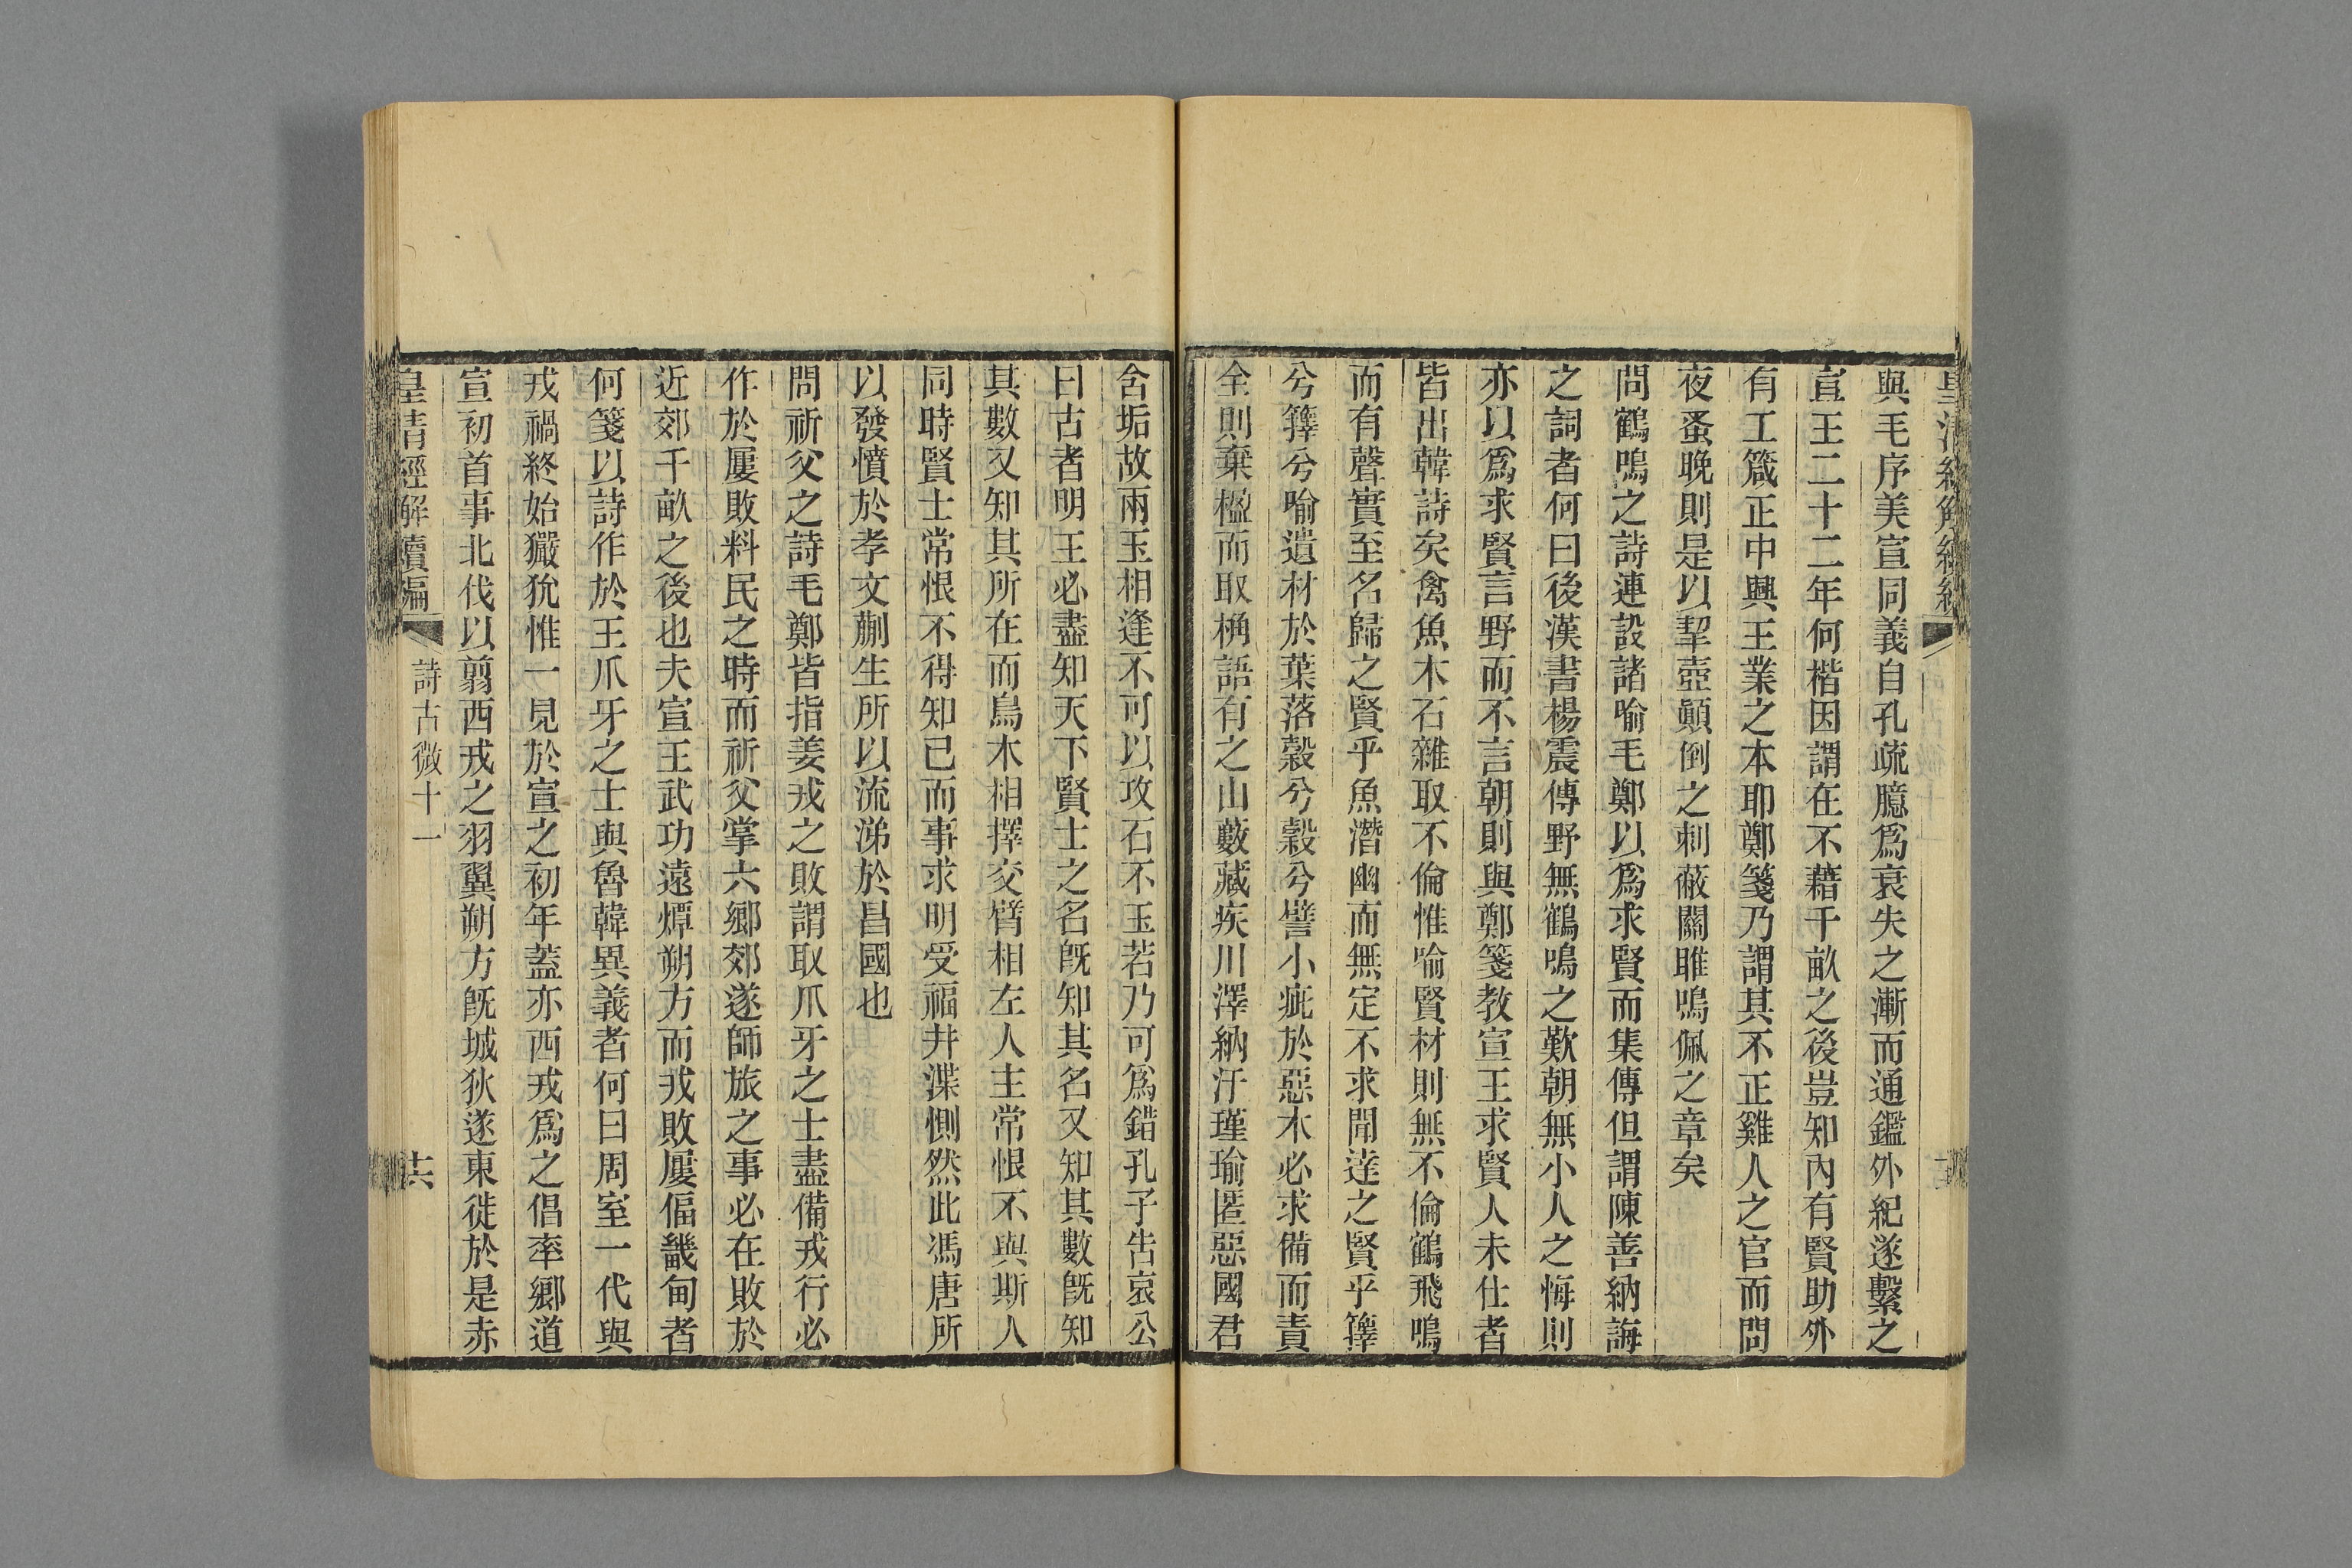 與毛序美宣同義自孔疏臆爲衰失之漸而通鑑外紀遂繫之
宣王二十二年何楷因謂在不藉千畝之後豈知內有賢助外
有工箴正中興王業之本耶鄭箋乃謂其不正雞人之官而問
夜蚤晚則是以挈壺顚倒之刺蔽關雎鳴佩之章矣
問鶴鳴之詩連設諸喻毛鄭以爲求賢而集傳但謂陳善納誨
之詞者何曰後漢書楊震傳野無鶴鳴之歎朝無小人之悔則
亦以爲求賢言野而不言朝則與鄭箋教宣王求賢人未仕者
皆出韓詩矣禽魚木石雜取不倫惟喻賢材則無不倫鶴飛鳴
而有聲實至名歸之賢乎魚潛幽而無定不求聞達之賢乎蘀
兮蘀兮喻遺材於葉落榖兮榖兮譬小疵於惡木必求備而責
全則棄楹而取桷語有之山藪藏疾川澤納汙瑾瑜匿惡國君
含垢故兩玉相逢不可以攻石不玉若乃可爲錯孔子告哀公
曰古者明王必盡知天下賢士之名旣知其名又知其數旣知
其數又知其所在而鳥木相擇交臂相左人主常恨不與斯人
同時賢士常恨不得知已而事求明受福井渫惻然此馮唐所
以發憤於孝文蒯生所以流涕於昌國也
問祈父之詩毛鄭皆指姜戎之敗謂取爪牙之士盡備戎行必
作於屢敗料民之時而祈父掌六鄉郊遂師旅之事必在敗於
近郊千畝之後也夫宣王武功遠燂朔方而戎敗屢偪畿甸者
何箋以詩作於王爪牙之士與魯韓異義者何曰周室一代與
戎禍終始玁狁惟一見於宣之初年蓋亦西戎爲之倡率鄉道
宣初首事北伐以翦西戎之羽翼朔方旣城狄遂東徙於是赤
皇清經解續編
詩古微十一
十六